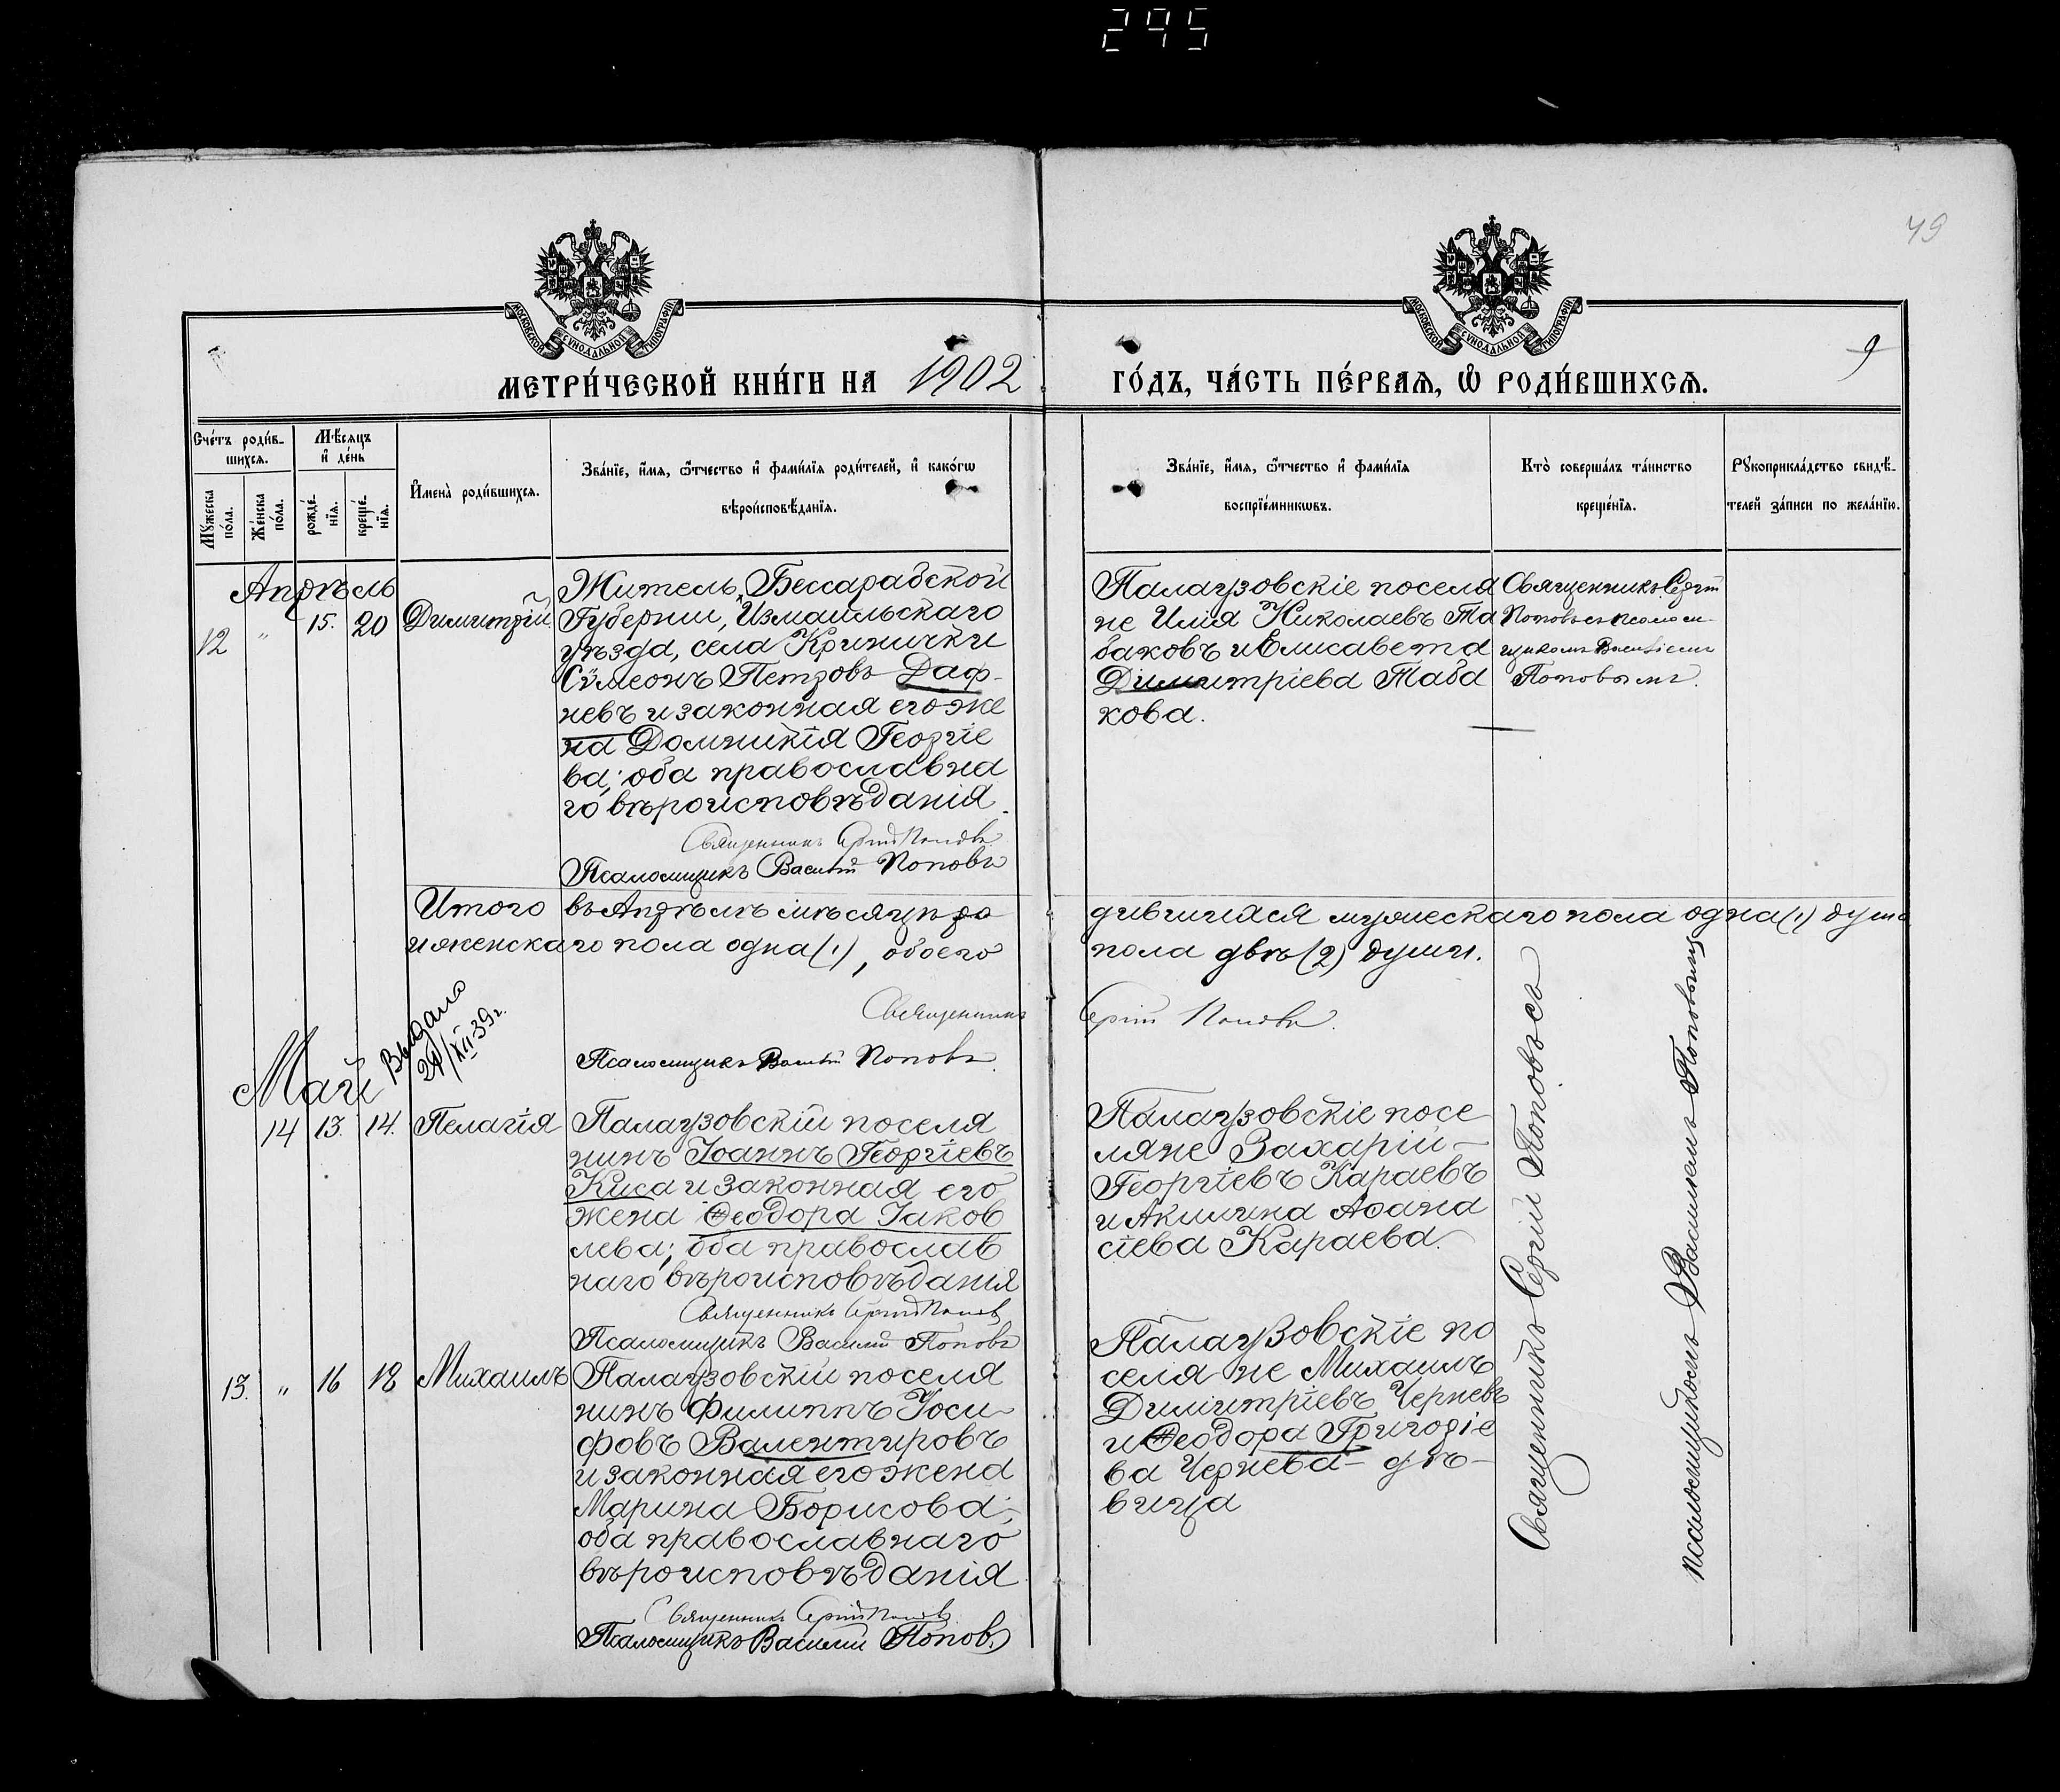 295
49
МОСКОВСКОЙ СУНОДАЛЬНОЙ ТИПОГРАФІИ
МОСКОВСКОЙ СУНОДАЛЬНОЙ ТИПОГРАФІИ
9
МЕТРИ́ЧЕСКОЙ КНИ́ГИ НА 1902 ГО́ДЪ, ЧА́СТЬ ПЕ́РВАѦ, Ѿ РОДИ́ВШИХСѦ.
Сче́тъ роди́в-
шихсѧ.
Мꙋжеска по́ла.
Же́нска по́ла.
Мѣ́сяцъ
и҆ де́нь
рожде́-
нїѧ.
креще́-
нїѧ.
И҆мена̀ роди́вшихсѧ.
Зва́нїе, и҆́мѧ, ѻ҆́тчество и҆ фами́лїѧ роди́телей, и҆ како́гѡ
вѣроисповѣ́данїѧ.
Зва́нїе, и҆́мѧ, ѻ҆́тчество и҆ фами́лїѧ
воспрїе́мникѡвъ.
Кто̀ соверша́лъ та́инство
креще́нїѧ.
Рꙋкоприкла́дство свидѣ́-
телей за́писи по жела́нїю.
Апрѣль
12 " 15. 20 Димитрій.
Житель, Бессарабской
Губерніи, Измаильскаго
уѣзда, села Кринички
Сѵмеонъ Петровъ Даф-
невъ и законная его же
на Домникія Георгіе
ва; оба православна
го вѣроисповѣданія.
Священникъ Сергій Поповъ
Псаломщикъ Василій Поповъ
Палаузовскіе поселя
не Илія Николаевъ Та
баковъ и Елисавета
Димитріева Таба
кова.
Священникъ Сергій
Поповъ съ псалом-
щикомъ Василіемъ
Поповымъ.
Итого въ Апрѣлѣ мѣсяцѣ ро
дившихся мужескаго пола одна (1) душа
и женскаго пола одна (1), обоего
пола двѣ (2) души.
Священникъ Сергій Поповъ.
Псаломщикъ Василій Поповъ.
Выдано
29/XII-39 г.
Май
14 13. 14. Пелагія
Палаузовскій поселя
нинъ Іоаннъ Георгіевъ
Киса и законная его
жена Ѳеодора Іаков
лева; оба православ
наго вѣроисповѣданія
Священникъ Сергій Поповъ
Псаломщикъ Василій Поповъ
Палаузовскіе посе
ляне Захарій
Георгіевъ Караевъ
и Акилина Аѳана
сіева Караева.
13. " 16 18 Михаилъ
Палаузовскій поселя
нинъ Филиппъ Іоси
фовъ Валентировъ
и законная его жена
Марина Борисова;
оба православнаго
вѣроисповѣданія
Священникъ Сергій Поповъ.
Псаломщикъ Василій Поповъ
Палаузовскіе по
селя не Михаилъ
Димитріевъ Черневъ
и Ѳеодора Григоріе
ва Чернева - дѣ-
вица
Священникъ Сергій Поповъ съ
псаломщикомъ Василіемъ Поповымъ